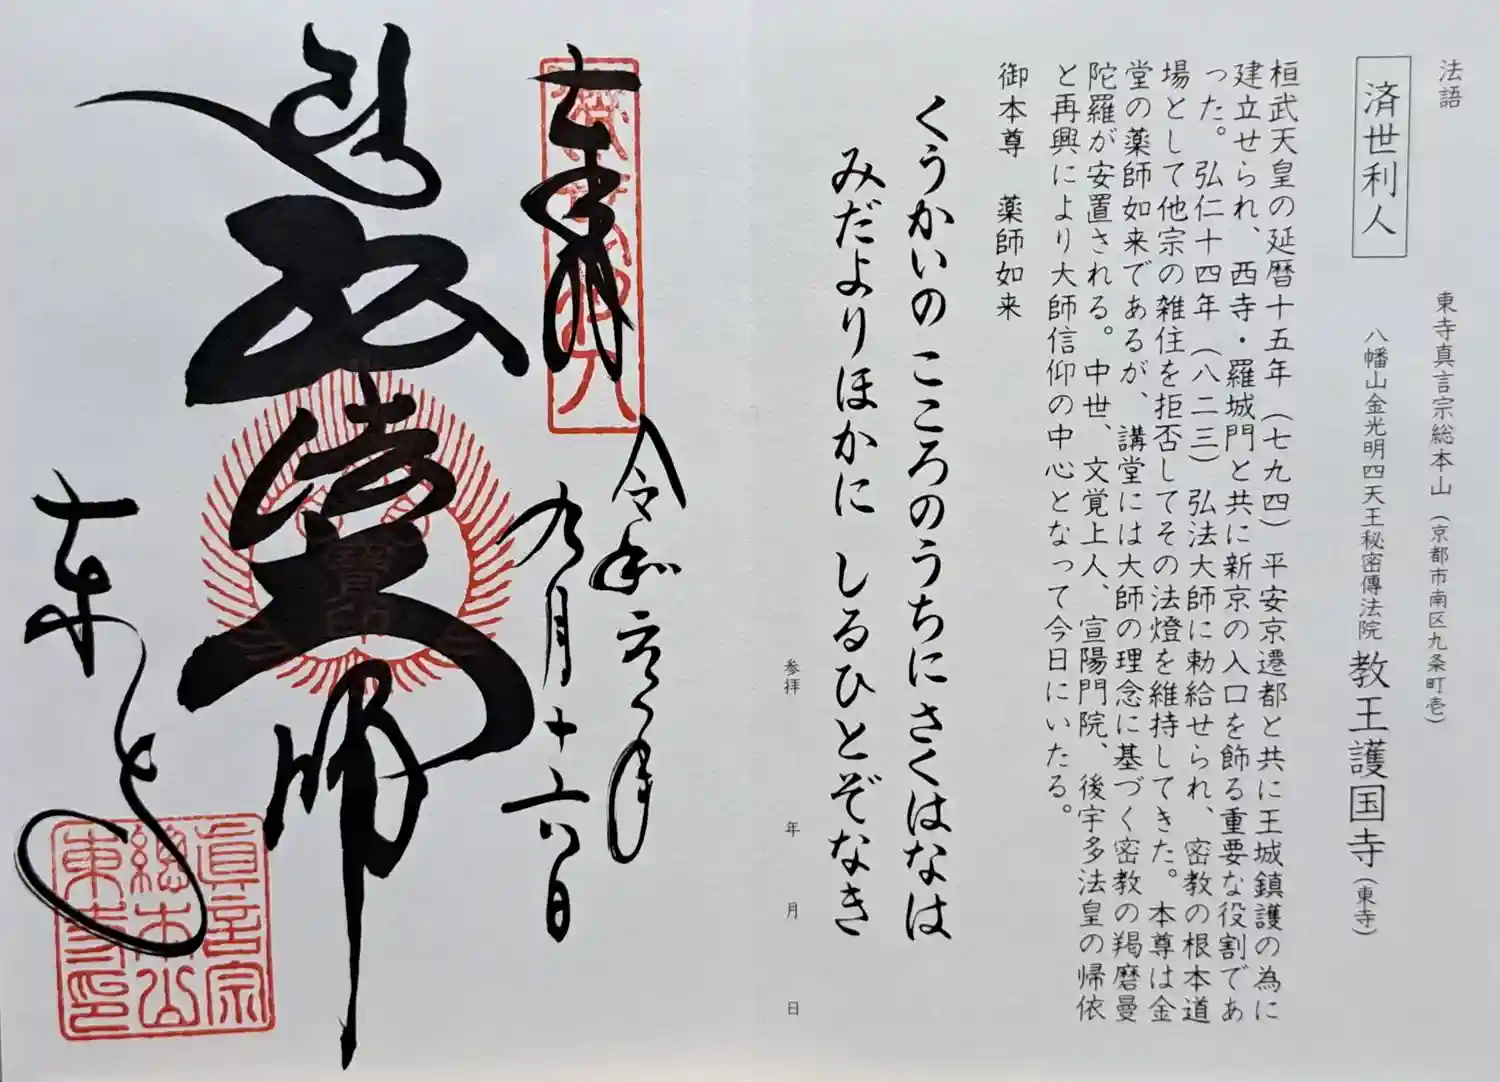 法語
東寺真言宗総本山（京都市南区九条町壱）
済世利人
八幡山金光明四天王秘密傳法院 教王護国寺（東寺）
桓武天皇の延暦十五年（七九四）平安京遷都と共に王城鎮護の為に
建立せられ、西寺・羅城門と共に新京の入口を飾る重要な役割であ
った。弘仁十四年（八二三）弘法大師に勅給せられ、密教の根本道
場として他宗の雑住を拒否してその法燈を維持してきた。本尊は金
堂の薬師如来であるが、講堂には大師の理念に基づく密教の羯磨曼
陀羅が安置される。中世、文覚上人、宣陽門院、後宇多法皇の帰依
と再興により大師信仰の中心となって今日にいたる。
御本尊 薬師如来
くうかいの こころのうちに さくはなは
みだよりほかに しるひとぞなき
参拝 年 月 日
奉拝
令和六年
九月十六日
東寺
眞言宗
總本山
東寺印